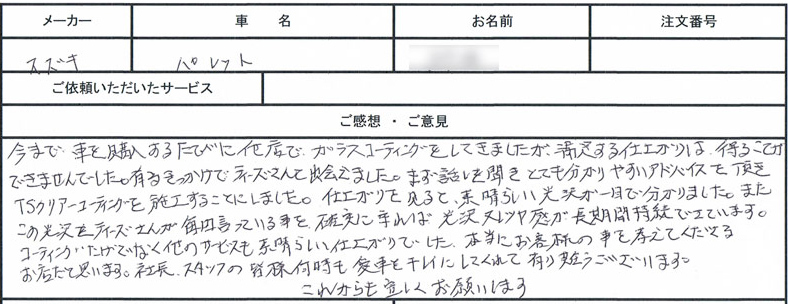 メーカー 車 名 お名前 注文番号
スズキ パレット
ご依頼いただいたサービス
ご感想 ・ ご意見
今まで、車を購入するたびに他店で、ガラスコーティングをしてきましたが、満足する仕上がりは、得ることが
できませんでした。有るきっかけでティーズさんと出会えました。まず話しを聞きとても分かりやすいアドバイスを頂き
TSクリアーコーティングを施工することにしました。仕上がりを見ると、素晴らしい光沢が一目で分かりました。また
この光沢をティーズさんが毎回言っている事を、確実に守れば光沢、ツヤ感が長期間持続できています。
コーティングだけでなく他のサービスも素晴らしい仕上がりでした。本当にお客様の事を考えてくださる
お店だと思います。社長、スタッフの皆様何時も愛車をキレイにしてくれて有り難うございます。
これからも宜しくお願いします